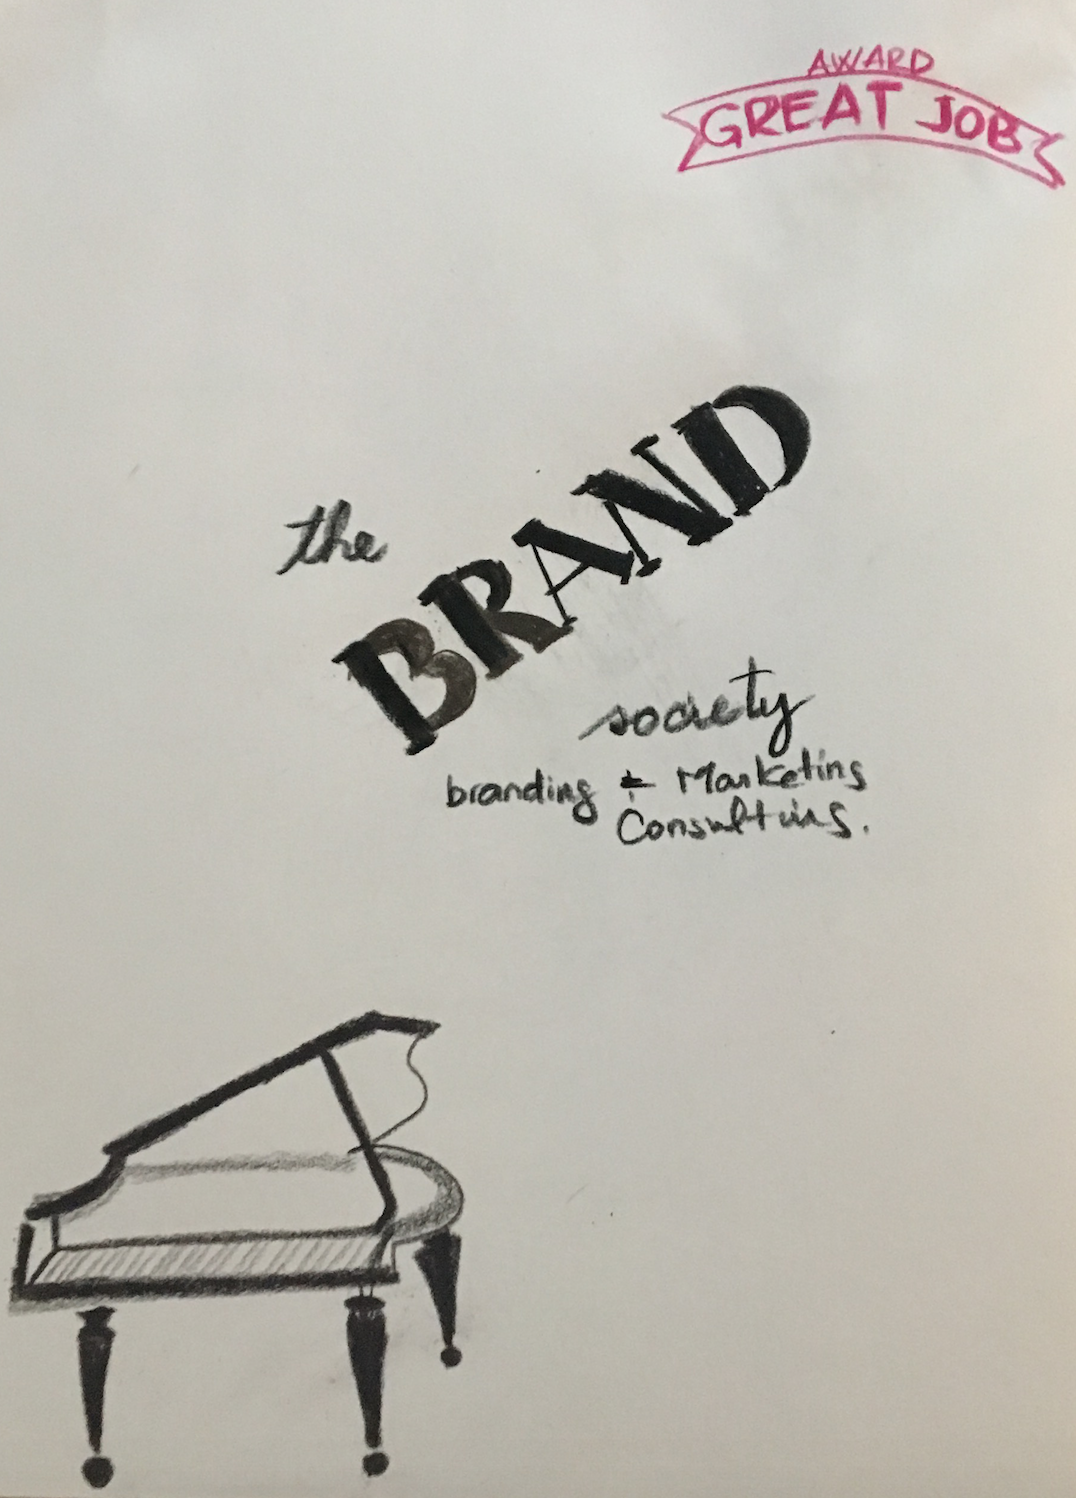 AWARD
GREAT JOB
the
BRAND
society
branding + Marketing
Consulting.